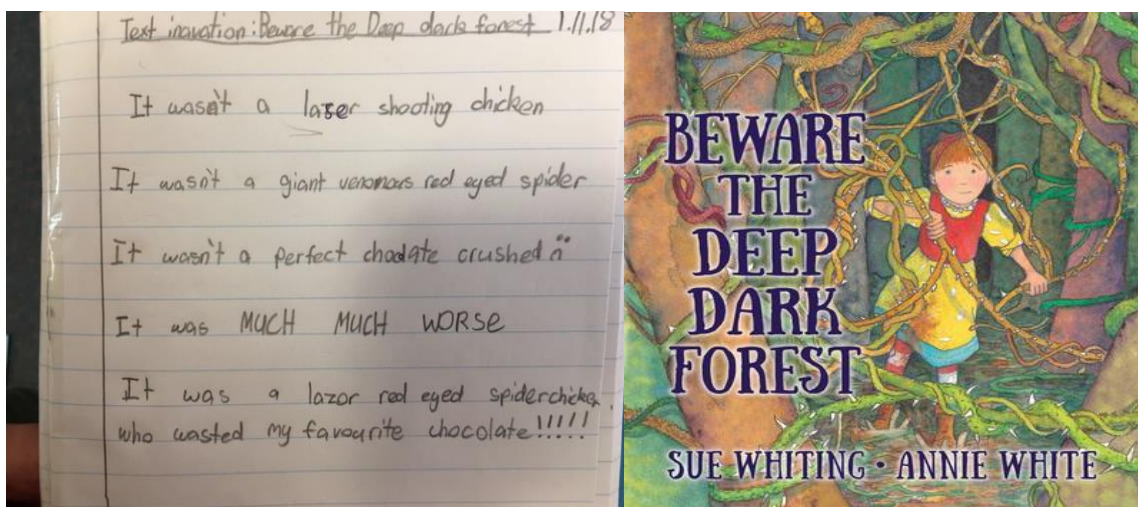 Text inavation: Beware the Deep dark forest 1.11.18
It wasn't a laser shooting chicken
It wasn't a giant venomous red eyed spider
It wasn't a perfect choclate crushed ¨
It was MUCH MUCH WORSE
It was a lazor red eyed spiderchicken
who wasted my favourite chocolate!!!!!
BEWARE
THE
DEEP
DARK
FOREST
SUE WHITING · ANNIE WHITE